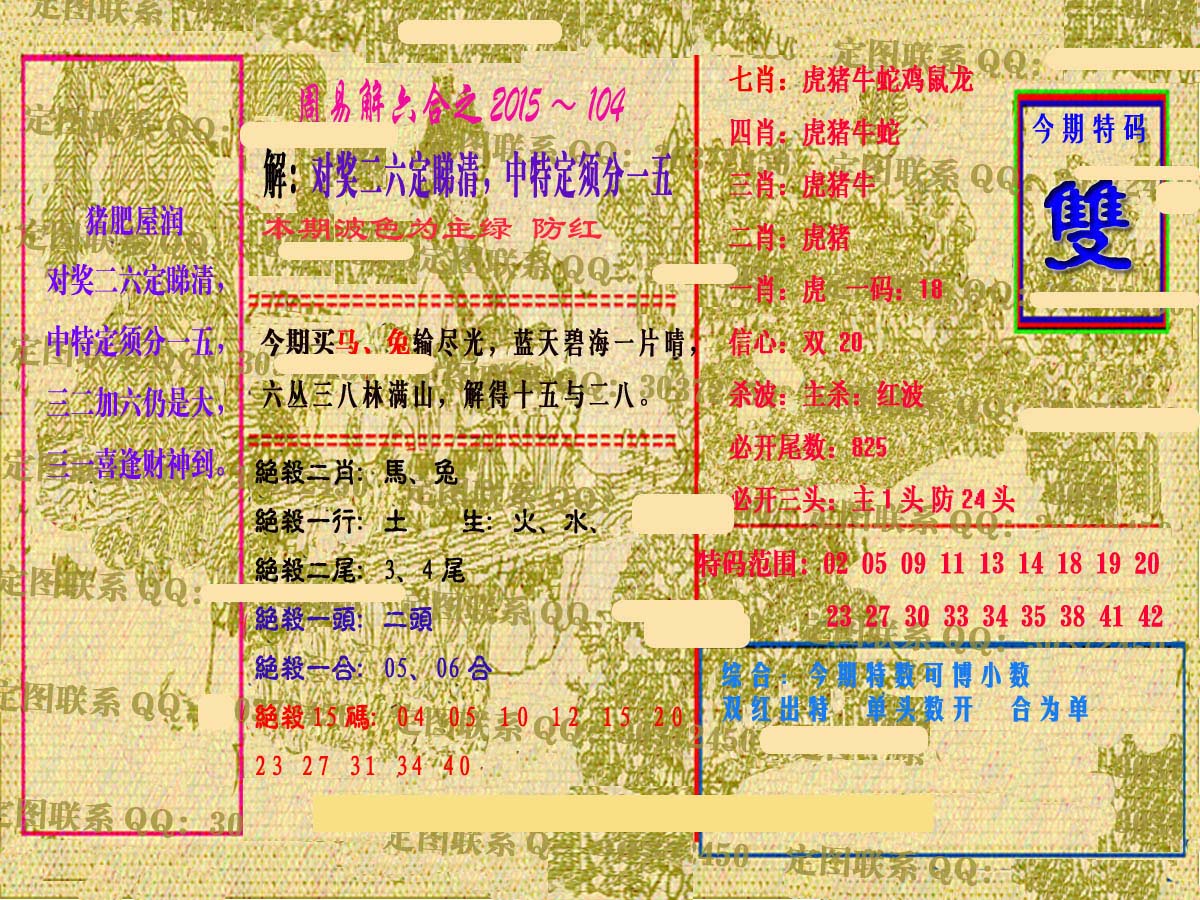 猪肥屋润
对奖二六定睇清，
中特定须分一五，
三二加六仍是大，
三一喜逢财神到。
周易解六合之2015～104
解：对奖二六定睇清，中特定须分一五
本期波色为主绿 防红
今期买马、兔输尽光，蓝天碧海一片晴，
六丛三八林满山，解得十五与二八。
絕殺二肖：馬、兔
絕殺一行：土 生：火、水、
絕殺二尾：3、4尾
絕殺一頭：二頭
絕殺一合：05、06合
絕殺15碼：04 05 10 12 15 20
23 27 31 34 40
七肖：虎猪牛蛇鸡鼠龙
四肖：虎猪牛蛇
三肖：虎猪牛
二肖：虎猪
一肖：虎 一码：18
信心：双 20
杀波：主杀：红波
必开尾数：825
必开三头：主1头防24头
今期特码
雙
特码范围：02 05 09 11 13 14 18 19 20
23 27 30 33 34 35 38 41 42
综合：今期特数可博小数
双红出特 单头数开 合为单
定图联系QQ：